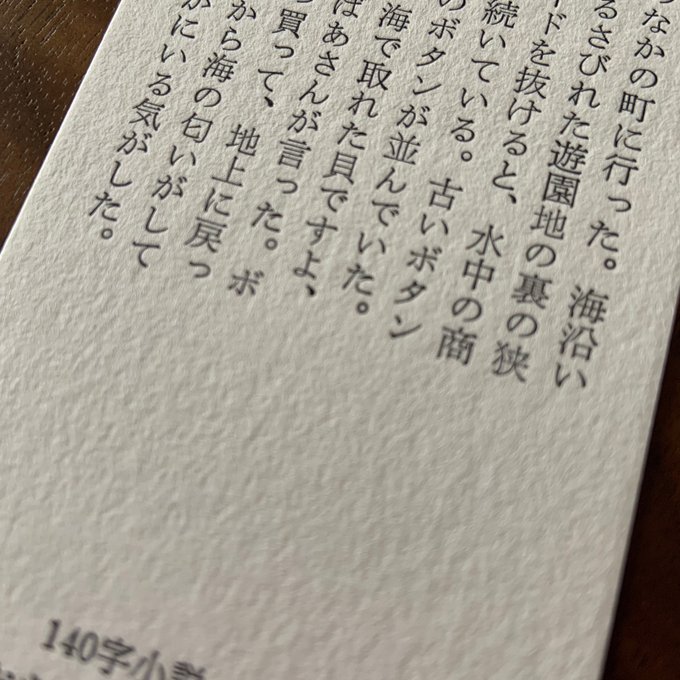 なかの町に行った。海沿い
るさびれた遊園地の裏の狭
ドを抜けると、水中の商
続いている。古いボタン
のボタンが並んでいた。
海で取れた貝ですよ、
ばあさんが言った。ボ
買って、地上に戻っ
から海の匂いがして
かにいる気がした。
140字小説